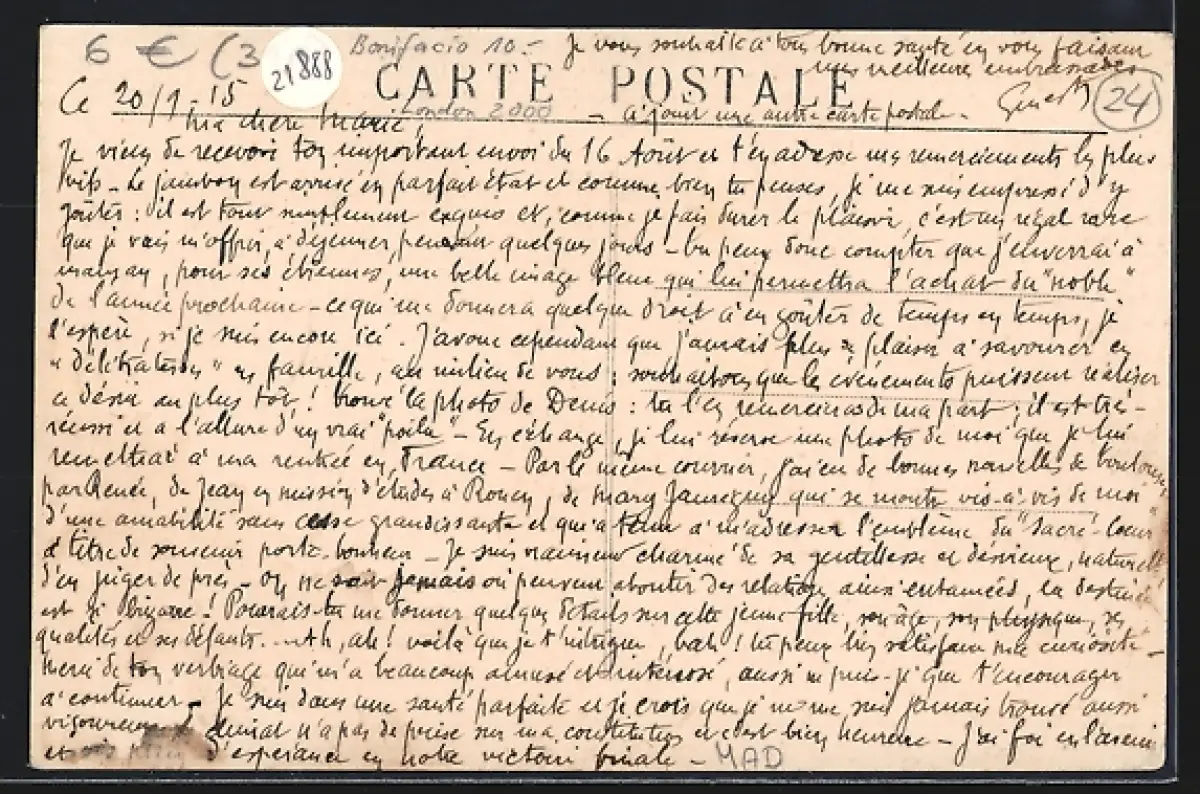 6 € (3 Bonifacio 10.- Je vous souhaite à tous bonne santé en vous faisant
21888
mes meilleures embrassades
CARTE POSTALE
24
Ce 20/9.15 London 2000 - Ci joint une autre carte postale -
Ma chère Marie,
Je viens de recevoir ton important envoi du 16 Août et t'en adresse mes remerciements les plus
vifs - Le jambon est arrivé en parfait état et comme bien tu penses, je me suis empressé d'y
goûter : il est tout simplement exquis et, comme je fais durer le plaisir, c'est un régal rare
que je vais m'offrir à déjeuner pendant quelques jours - tu peux donc compter que j'enverrai à
maman, pour ses étrennes, une belle image bleue qui lui permettra l'achat du "noble"
de l'année prochaine - ce qui me donnera quelque droit à en goûter de temps en temps, je
l'espère, si je suis encore ici. J'avoue cependant que j'aurais plus de plaisir à savourer ces
" en famille, au milieu de vous : souhaitons que les événements puissent réaliser
ce désir au plus tôt ! trouvé la photo de Denis : tu l'en remercieras de ma part ; il est très
réussi et a l'allure d'un vrai "poilu" - En échange, je lui réserve une photo de moi que je lui
remettrai à ma rentrée en France - Par le même courrier, j'ai eu de bonnes nouvelles de Toulouse,
par Renée, de Jean en mission d'études à Rouen, de Mary qui se montre vis-à-vis de moi
d'une amabilité sans cesse grandissante et qui a tenu à m'adresser l'emblème du "Sacré-Coeur"
à titre de souvenir porte-bonheur - Je suis vraiment charmé de sa gentillesse et désireux, naturell.
d'en juger de près - On ne sait jamais où peuvent aboutir des relations ainsi entamées, la destinée
est si bizarre ! Pourrais-tu me donner quelques détails sur cette jeune fille, son âge, son physique, ses
qualités et ses défauts. - Ah, ah ! voilà que je t'intrigue, bah ! tu peux bien satisfaire ma curiosité -
Merci de ton verbiage qui m'a beaucoup amusé et intéressé, aussi ne puis-je que t'encourager
à continuer - Je suis dans une santé parfaite et je crois que je ne me suis jamais trouvé aussi
vigoureux climat n'a pas de prise sur ma constitution et c'est bien heureux - J'ai foi en l'avenir
et suis plein d'espérance en notre victoire finale - MAD